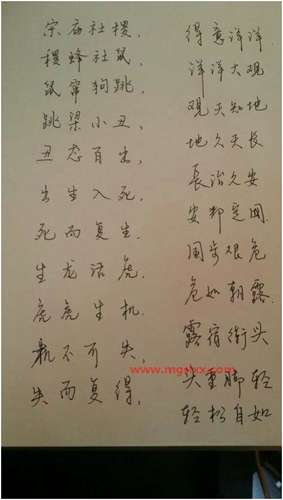 宗庙社稷,
稷蜂社鼠,
鼠窜狗跳,
跳梁小丑,
丑态百出,
出生入死,
死而复生.
生龙活虎.
虎虎生机.
机不可失,
失而复得,
得意洋洋
洋洋大观
观天知地
地久天长
長治久安
安邦定国.
国步艰危
危如朝露.
露宿街头
头重脚轻
轻松自如